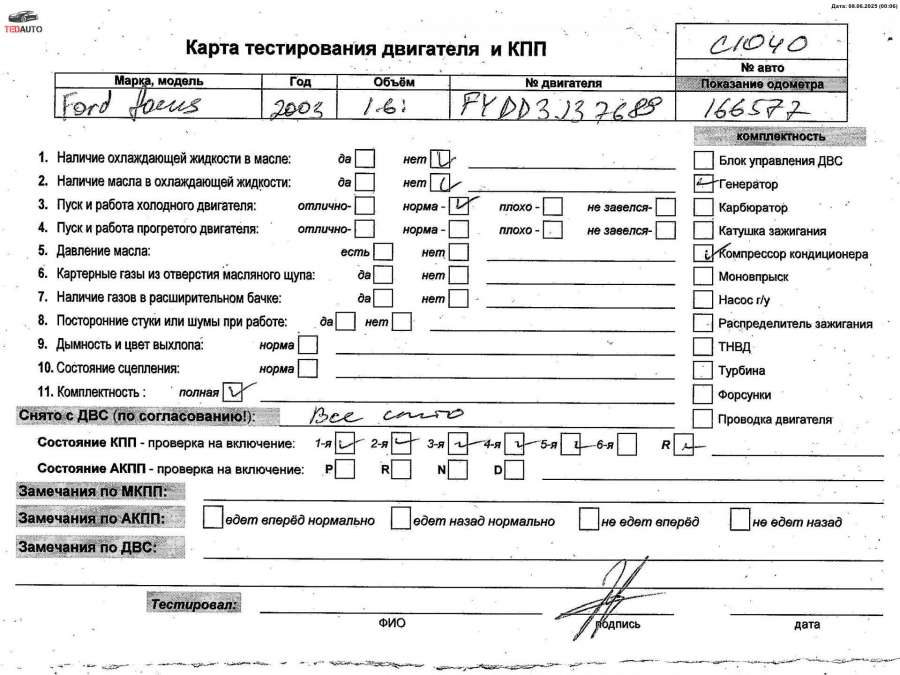 Дата: 08.06.2025 (00:06)
TEDAUTO
Карта тестирования двигателя и КПП
C1040
№ авто
Марка, модель Год Объём № двигателя Показание одометра
Ford focus 2003 1.6i FYDD3J37689 166577
комплектность
1. Наличие охлаждающей жидкости в масле: да нет
Блок управления ДВС
2. Наличие масла в охлаждающей жидкости: да нет
Генератор
3. Пуск и работа холодного двигателя: отлично- норма - плохо - не завелся-
Карбюратор
4. Пуск и работа прогретого двигателя: отлично- норма - плохо - не завелся-
Катушка зажигания
5. Давление масла: есть нет
Компрессор кондиционера
6. Картерные газы из отверстия масляного щупа: да нет
Моновпрыск
7. Наличие газов в расширительном бачке: да нет
Насос г/у
8. Посторонние стуки или шумы при работе: да нет
Распределитель зажигания
9. Дымность и цвет выхлопа: норма
ТНВД
10. Состояние сцепления: норма
Турбина
11. Комплектность : полная
Форсунки
Снято с ДВС (по согласованию!): Все снято
Проводка двигателя
Состояние КПП - проверка на включение: 1-я 2-я 3-я 4-я 5-я 6-я R
Состояние АКПП - проверка на включение: P R N D
Замечания по МКПП:
Замечания по АКПП: едет вперёд нормально едет назад нормально не едет вперёд не едет назад
Замечания по ДВС:
Тестировал:
ФИО подпись дата